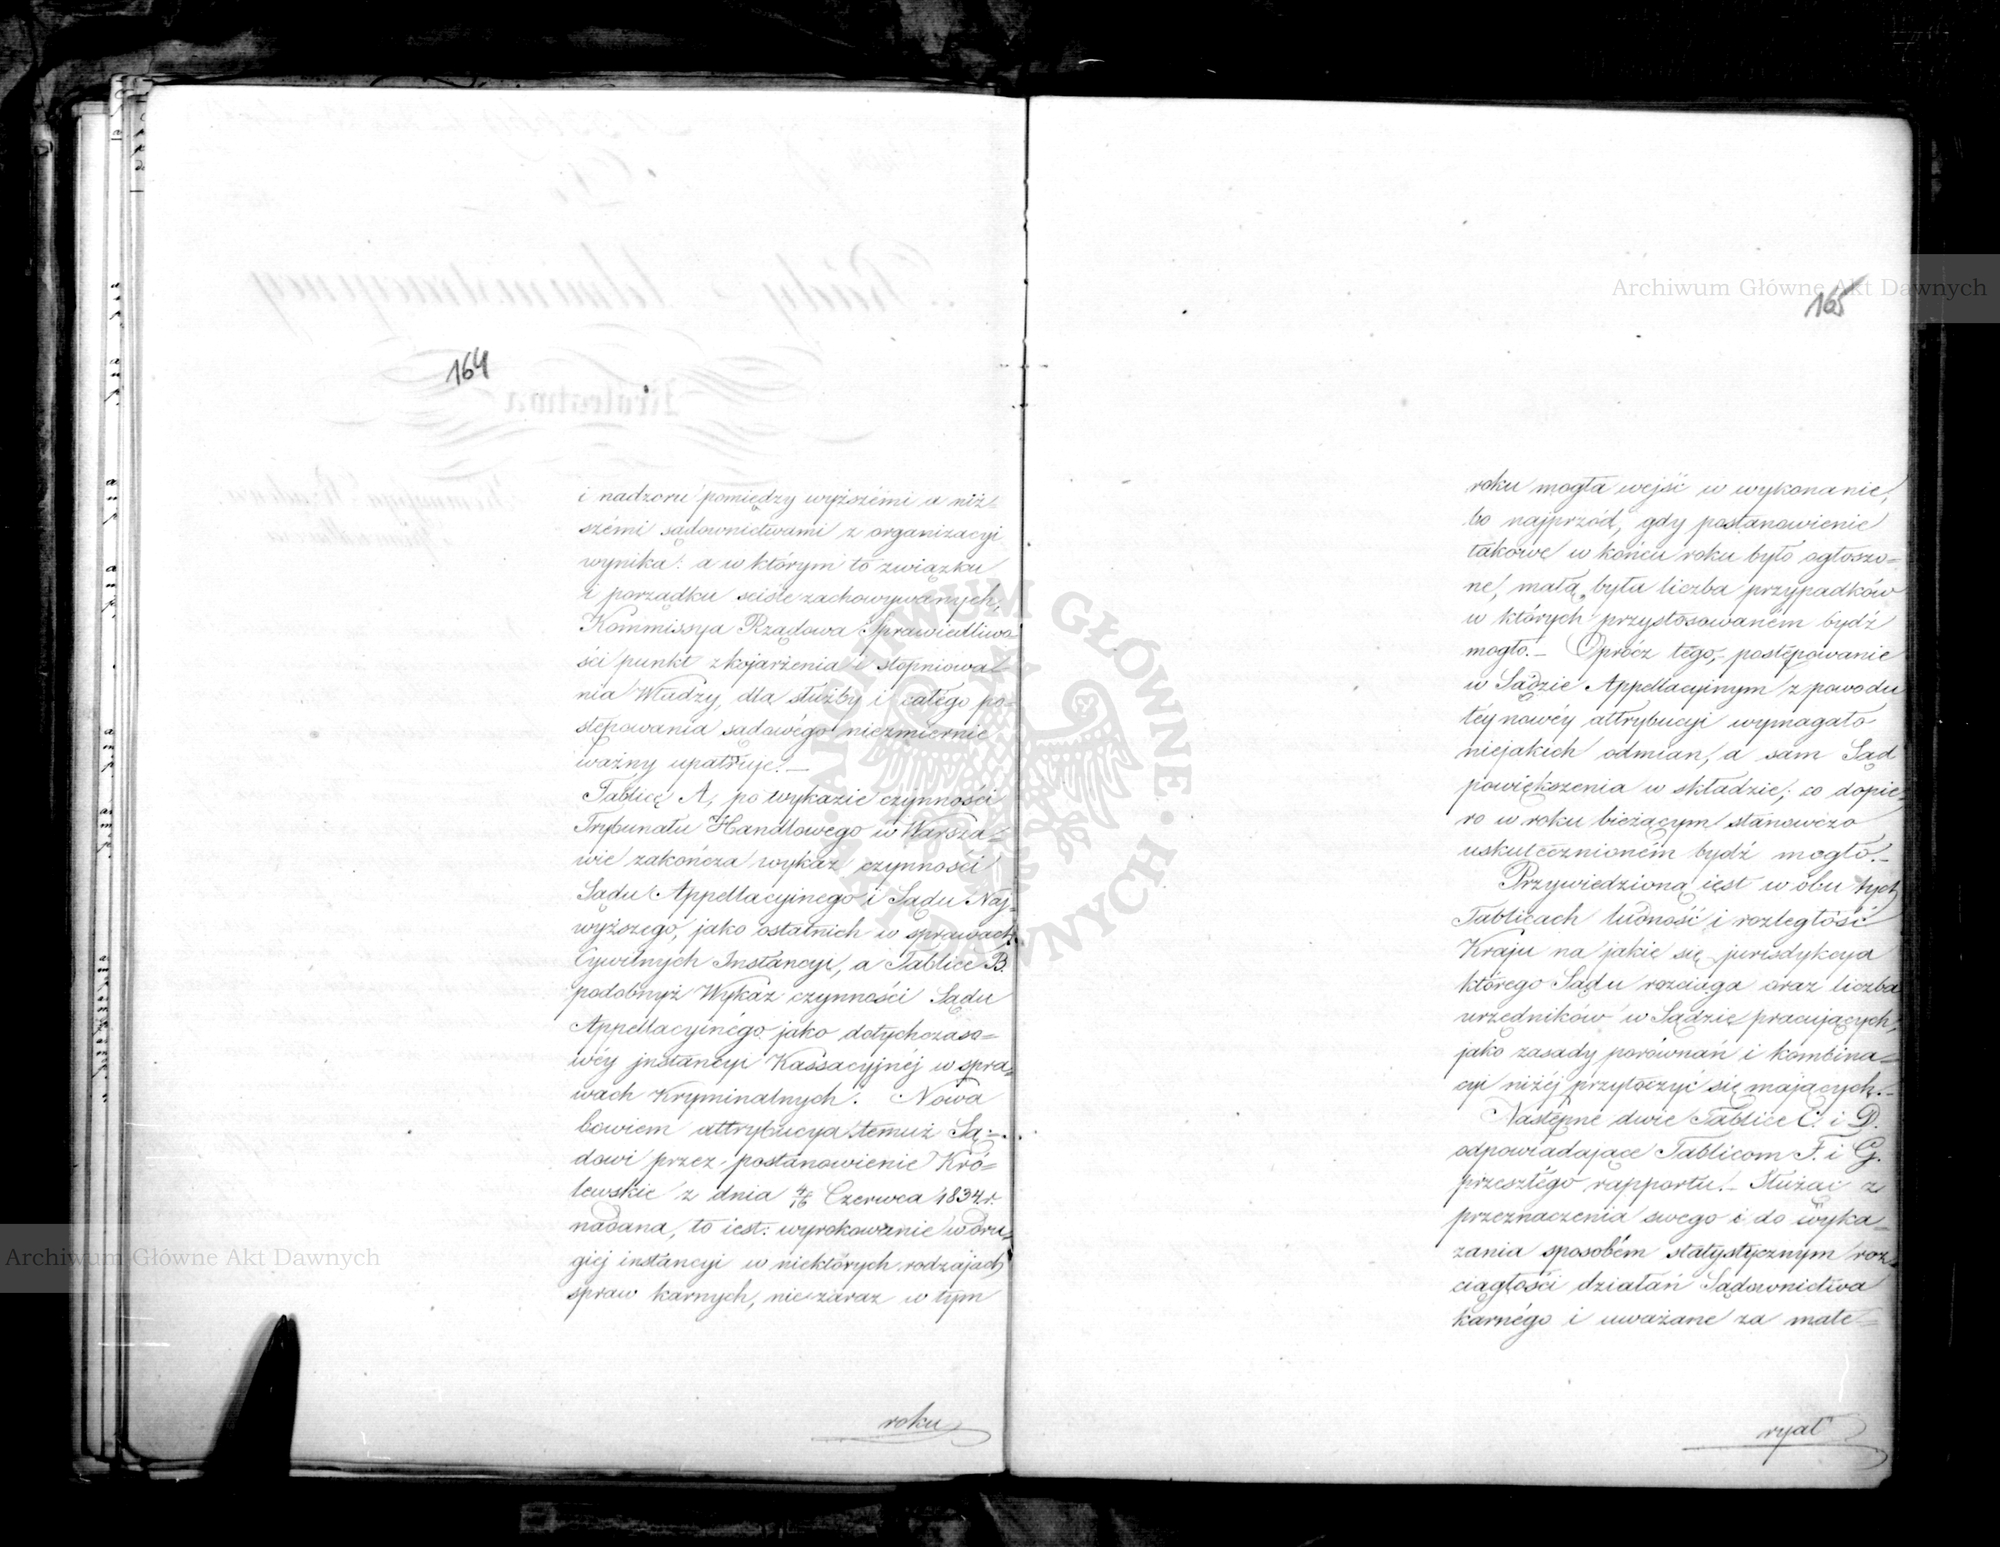 164
i nadzoru pomiędzy wyższémi a niż=
szémi sądownictwami z organizacyi
wynika: a w którym to związku
i porządku sciśle zachowywanych,
Kommissya Rządowa Sprawiedliwo=
ści punkt zkojarzenia i stopniowa=
nia Władzy, dla służby i całego po=
stępowania sądowégo niezmiernie
ważny upatruje.—
Tablicę A, po wykazie czynności
Trybunału Handlowego w Warsza=
wie zakończa wykaz czynności
Sądu Appellacyinego i Sądu Naj=
wyższego, jako ostatnich w sprawach
Cywilnych Instancyi, a Tablicę B.
podobnyż Wykaz czynności Sądu
Appellacyinégo jako dotychczaso=
wéy jnstancyi Kassacyjnéj w spra=
wach Kryminalnych. Nowa
bowiem attrybucya temuż Są=
dowi przez postanowienie Kró=
lewskie z dnia 4/16 Czerwca 1834. r.
nadana, to iest: wyrokowanie w dru=
giej instancyi w niektórych rodzajach
spraw karnych, nie zaraz w tym
roku
165
roku mogła wejść w wykonanie,
bo najprzód, gdy postanowienie
takowe w końcu roku było ogłoszo=
ne, małą była liczba przypadków
w których przystosowaném bydź
mogło.— Oprócz tego, postępowanie
w Sądzie Appellacyinym z powodu
téy nowéy attrybucyi wymagało
niejakich odmian, a sam Sąd
powiększenia w składzie; co dopie=
ro w roku bieżącym stanowczo
uskutecznioném bydź mogło.—
Przywiedzioną iest w obu tych
Tablicach ludność i rozległość
Kraju na jakie się jurisdykcya
którego Sądu rozciąga oraz liczba
urzędników w Sądzie pracujących,
jako zasady porównań i kombina=
cyi niżéj przytoczyć się mających.—
Następne dwie Tablice C. i D.
odpowiadające Tablicom F. i G.
przeszłégo rapportu.— Służąc z
przeznaczenia swego i do wyka=
zania sposobém statystycznym roz=
ciągłości działań Sądownictwa
karnégo i uważane za mate=
ryał
Archiwum Główne Akt Dawnych
Archiwum Główne Akt Dawnych
ARCHIWUM GŁÓWNE AKT DAWNYCH